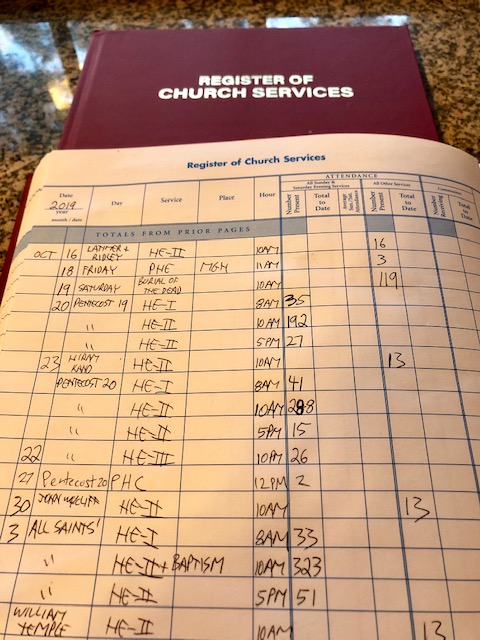 REGISTER OF
CHURCH SERVICES
Register of Church Services
ATTENDANCE
Date 2019 year month / date Day Service Place Hour All Sunday & Saturday Evening Services Number Present Total to Date Average Sun./Sat. Attendance All Other Services Number Present Total to Date Communions Number Receiving Total
TOTALS FROM PRIOR PAGES
OCT 16 LATIMER + RIDLEY HE-II 10AM 16
18 FRIDAY PHE MGH 11AM 3
19 SATURDAY BURIAL OF THE DEAD 10AM 119
20 PENTECOST 19 HE-I 8AM 35
" HE-II 10AM 192
" HE-II 5PM 27
23 HIRAM KANO HE-II 10AM 13
PENTECOST 20 HE-I 8AM 41
" HE-II 10AM 288
" HE-II 5PM 15
22 " HE-III 10PM 26
27 Pentecost 20 PHC 12PM 2
30 JOHN WYCLIFF HE-II 10AM 13
3 ALL SAINTS' HE-I 8AM 33
" HE-II + BAPTISM 10AM 323
" HE-II 5PM 51
WILLIAM TEMPLE HE-II 10AM 13